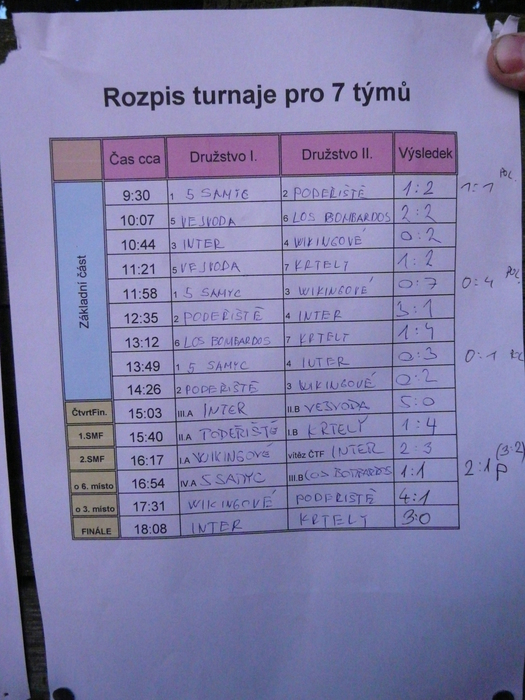 Rozpis turnaje pro 7 týmů
Čas cca Družstvo I. Družstvo II. Výsledek
Základní část
9:30 1 5 SAMYC 2 PODĚŘIŠTĚ 1:2 1:1 POL
10:07 5 VEJVODA 6 LOS BOMBARDOS 2:2
10:44 3 INTER 4 WIKINGOVÉ 0:2
11:21 5 VEJVODA 7 KRTELY 1:2
11:58 1 5 SAMYC 3 WIKINGOVÉ 0:7 0:4 POL
12:35 2 PODĚŘIŠTĚ 4 INTER 3:1
13:12 6 LOS BOMBARDOS 7 KRTELY 1:4
13:49 1 5 SAMYC 4 INTER 0:3 0:1
14:26 2 PODĚŘIŠTĚ 3 WIKINGOVÉ 0:2
ČtvrtFin. 15:03 III.A INTER II.B VEJVODA 5:0
1.SMF 15:40 II.A PODĚŘIŠTĚ I.B KRTELY 1:4
2.SMF 16:17 I.A WIKINGOVÉ vítěz ČTF INTER 2:3
o 6. místo 16:54 IV.A 5SAMYC III.B LOS BOMBARDOS 1:1 2:1 P (3:2)
o 3. místo 17:31 WIKINGOVÉ PODĚŘIŠTĚ 4:1
FINÁLE 18:08 INTER KRTELY 3:0